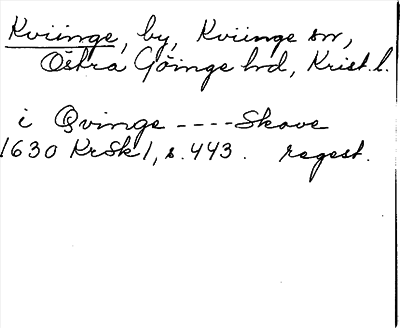 Kviinge, by, Kviinge sn,
Östra Göinge hd, Krist. l.
i Qvinge ---- Skove
1630 KrSk 1, s. 443. regest.